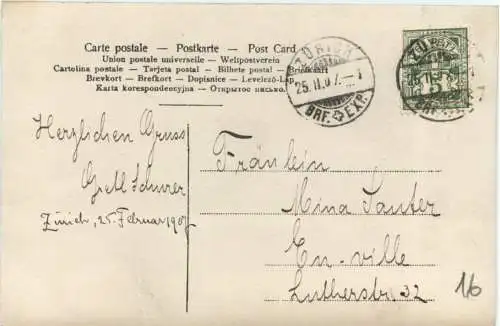 Carte postale – Postkarte – Post Card
Union postale universelle – Weltpostverein
Cartolina postale – Tarjeta postal – Bilhete postal – Briefkaart
Brevkort – Brefkort – Dopisnice – Levelező-Lap
Karta korespondencyjna – Открытое письмо.
ZÜRICH
25.II.07.–1
BRF. EXP.
5
Herzlichen Gruss
Gretl Schurer
Zürich, 25. Februar 1907
Fräulein
Mina Sauter
En-ville
Lutherstr. 32
16